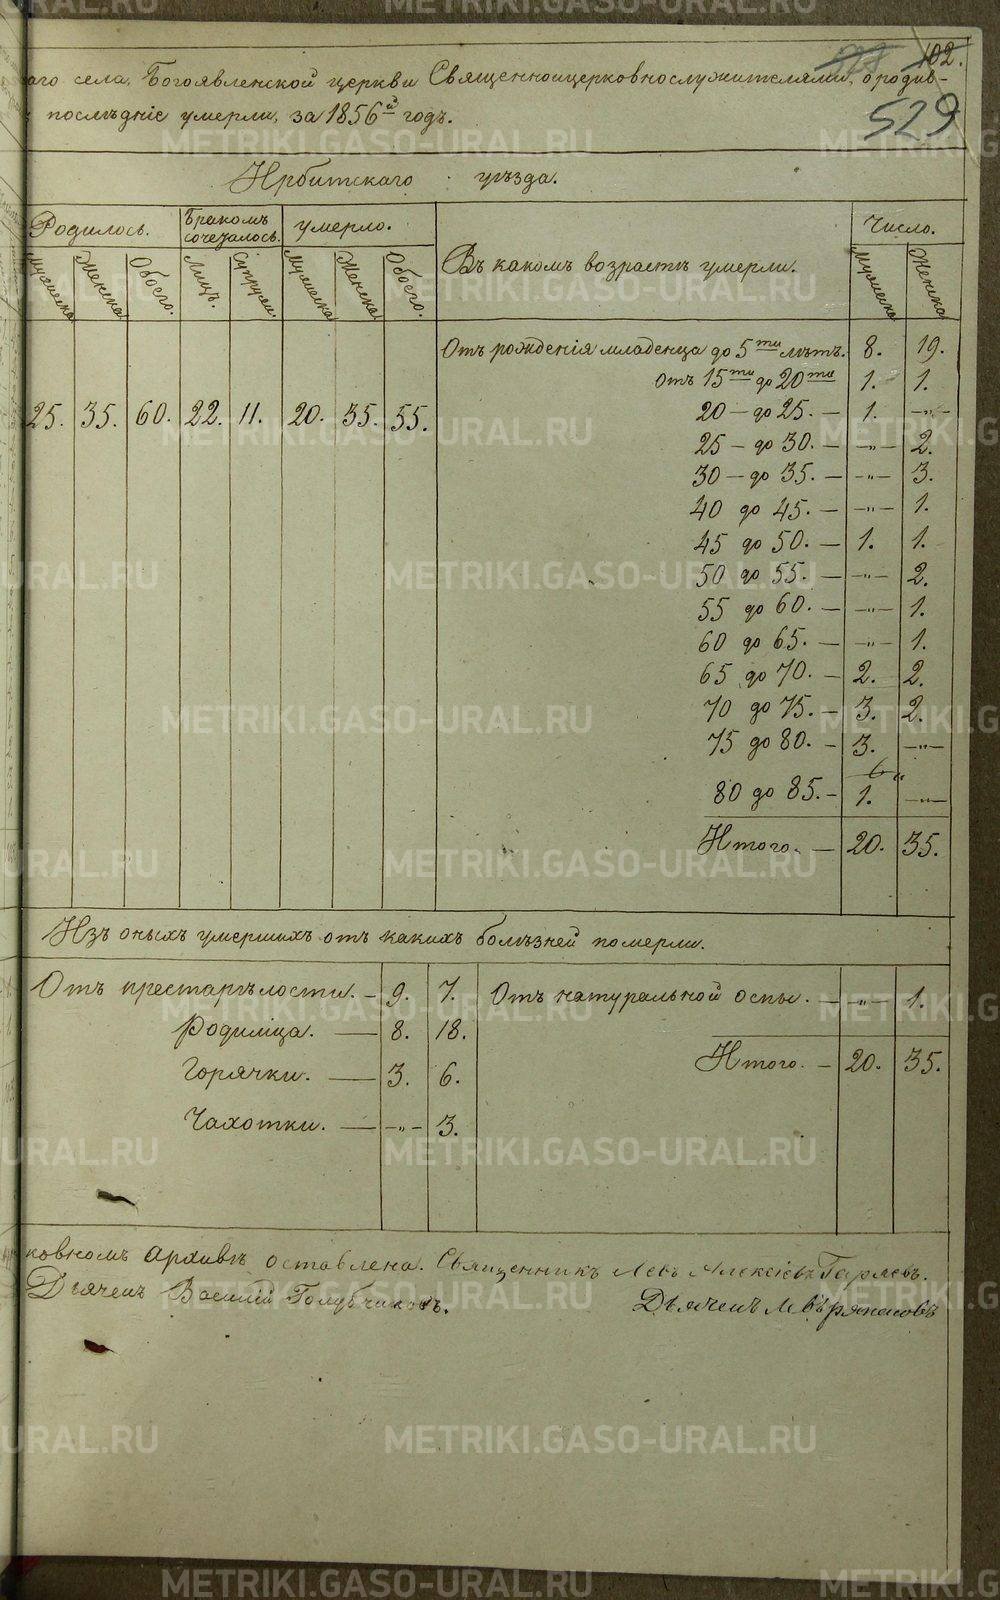 102.
529
аго села, Богоявленской церкви Священноицерковнослужителями, ородив-
послѣдніе умерли, за 1856й годъ.
Ирбитскаго уѣзда.
Родилось. Бракомъ сочеталось. умерло. Въ какомъ возрастѣ умерли. Число.
Мужеска Женска Обоего. Лицъ. Супруж. Мужеска Женска Обоего. Мужеска Женска
Отъ рожденія младенца до 5ти лѣтъ. 8. 19.
отъ 15ти до 20ти 1. 1.
25. 35. 60. 22. 11. 20. 35. 55. 20 — до 25. — 1. —"—
25 — до 30. — —"— 2.
30 — до 35. — —"— 3.
40 до 45. — —"— 1.
45 до 50. — 1. 1.
50 до 55. — —"— 2.
55 до 60. — —"— 1.
60 до 65. — —"— 1.
65 до 70. — 2. 2.
70 до 75. — 3. 2.
75 до 80. — 3. —"—
80 до 85. — 1. —"—
Итого. — 20. 35.
Изъ оныхъ умершихъ отъ какихъ болѣзней померли.
Отъ престарѣлости. — 9. 7. Отъ натуральной оспы. — —"— 1.
Родимца. — 8. 18.
Итого. — 20. 35.
Горячки. — 3. 6.
Чахотки. — —"— 3.
ковномъ архивѣ оставлена. Священникъ Левъ Алексіевъ Гаряевъ.
Дьячекъ Василій Голубчиковъ. Дьячекъ Лев
METRIKI.GASO-URAL.RU